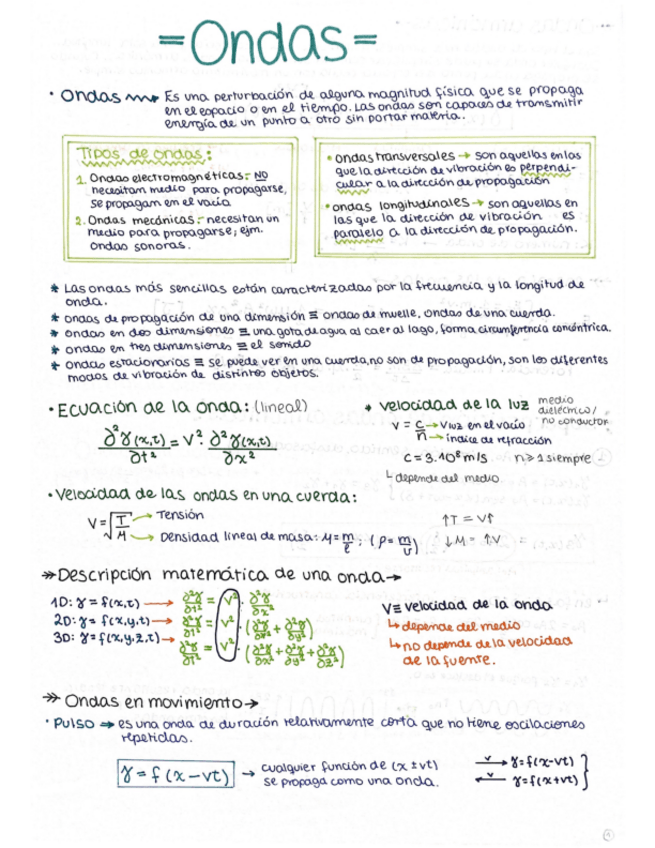 =Ondas=
· Ondas → Es una perturbación de alguna magnitud física que se propaga
en el espacio o en el tiempo. Las ondas son capaces de transmitir
energía de un punto a otro sin portar materia.
Tipos de ondas:
1. Ondas electromagnéticas:- NO
necesitan medio para propagarse,
se propagan en el vacío
2. Ondas mecánicas:- necesitan un
medio para propagarse; ejm.
ondas sonoras.
• ondas transversales → son aquellas en las
que la dirección de vibración es perpendi-
cular a la dirección de propagación
• ondas longitudinales → son aquellas en
las que la dirección de vibración es
paralelo a la dirección de propagación.
* Las ondas más sencillas están caracterizadas por la frecuencia y la longitud de
onda.
* ondas de propagación de una dimensión ≡ ondas de muelle, ondas de una cuerda.
* ondas en dos dimensiones ≡ una gota de agua al caer al lago, forma circunferencia concéntrica.
* ondas en tres dimensiones ≡ el sonido
* ondas estacionarias ≡ se puede ver en una cuerda, no son de propagación, son los diferentes
modos de vibración de distintos objetos.
· Ecuación de la onda: (lineal)
∂²γ(x,t)/∂t² = v² · ∂²γ(x,t)/∂x²
* velocidad de la luz medio
dieléctrico/
no conductor
v = c/n → v luz en el vacío
→ índice de refracción
c = 3·10⁸ m/s n ≥ 1 siempre
↳ depende del medio
· Velocidad de las ondas en una cuerda:
v = √T/μ → Tensión
→ Densidad lineal de masa: μ = m/l ; (ρ = m/v)
↑T = v↑
↓μ = ↑v
» Descripción matemática de una onda →
1D: γ = f(x,t) → ∂²γ/∂t² = v² · ∂²γ/∂x²
2D: γ = f(x,y,t) → ∂²γ/∂t² = v² · (∂²γ/∂x² + ∂²γ/∂y²)
3D: γ = f(x,y,z,t) → ∂²γ/∂t² = v² · (∂²γ/∂x² + ∂²γ/∂y² + ∂²γ/∂z²)
v ≡ velocidad de la onda
↳ depende del medio
↳ no depende de la velocidad
de la fuente.
» Ondas en movimiento →
· Pulso → es una onda de duración relativamente corta que no tiene oscilaciones
repetidas.
γ = f(x − vt) → cualquier función de (x ± vt)
se propaga como una onda.
v → γ = f(x-vt)
v ← γ = f(x+vt) }